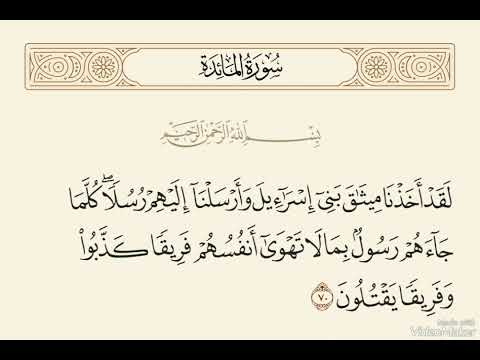 سُورَةُ المَائِدَةِ
بِسْمِ ٱللَّهِ ٱلرَّحْمَٰنِ ٱلرَّحِيمِ
لَقَدْ أَخَذْنَا مِيثَٰقَ بَنِىٓ إِسْرَٰٓءِيلَ وَأَرْسَلْنَآ إِلَيْهِمْ رُسُلًاۖ كُلَّمَا
جَآءَهُمْ رَسُولٌۢ بِمَا لَا تَهْوَىٰٓ أَنفُسُهُمْ فَرِيقًا كَذَّبُوا۟
وَفَرِيقًا يَقْتُلُونَ ٧٠
Made With
VideoMaker